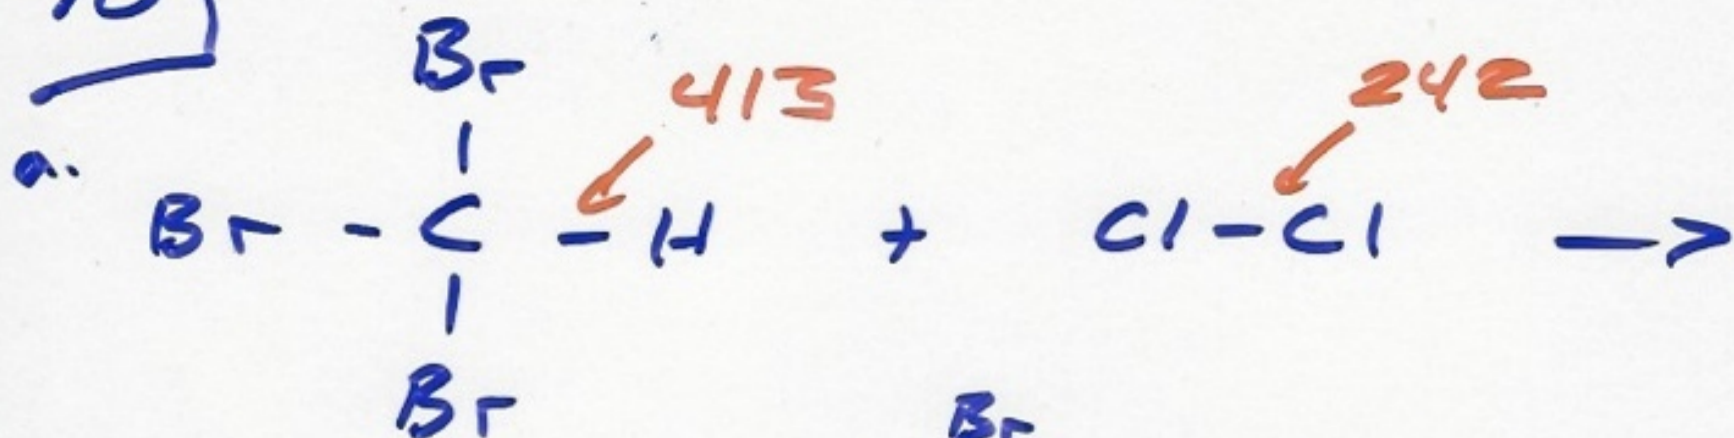 Br 413 242
a.
Br - C - H + Cl - Cl →
Br
Br